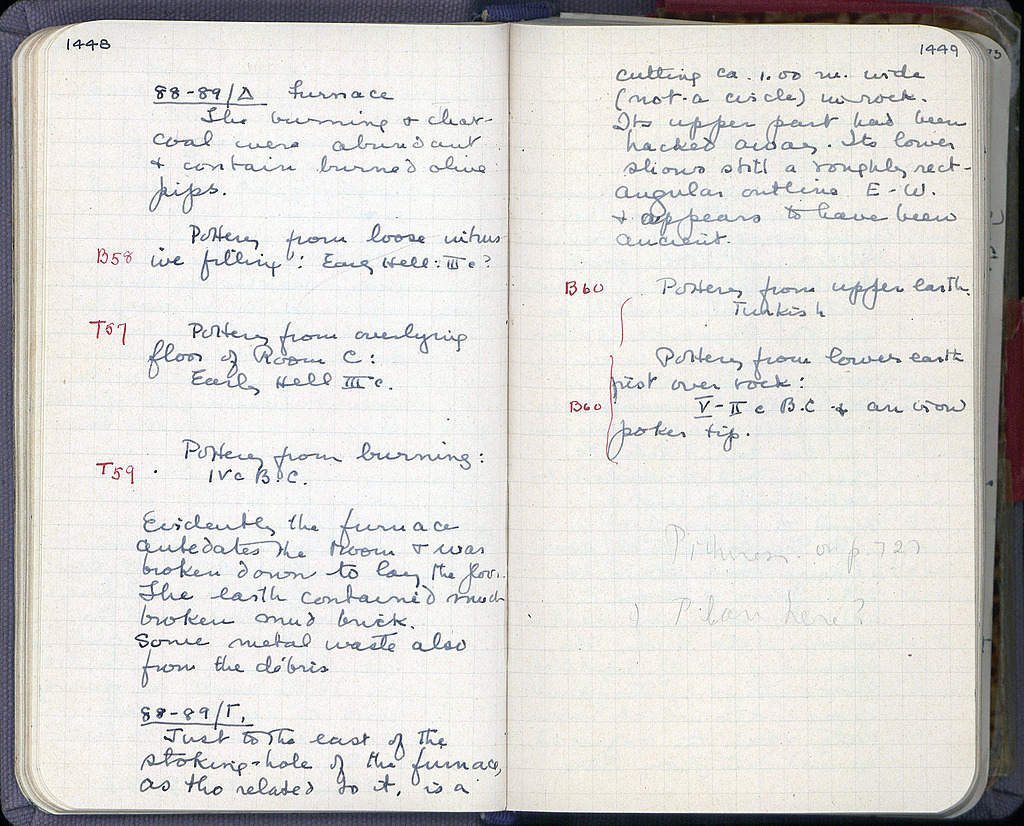 1448
88-89/Δ Furnace
The burning & char-
coal were abundant
& contain burned olive
pips.
Pottery from loose intrus
B58 ive filling: Early Hell: III c?
T57 Pottery from overlying
floor of Room C:
Early Hell III c.
Pottery from burning:
T59 . IV c B.C.
Evidently the furnace
antedates the Room & was
broken down to lay the floor.
The earth contained much
broken mud brick.
Some metal waste also
from the débris
88-89/Γ.
Just to the east of the
stoking-hole of the furnace,
as tho related to it, is a
1449
cutting ca. 1.00 m. wide
(not a circle) in rock.
Its upper part had been
hacked away. Its lower
shows still a roughly rect-
angular outline E-W.
& appears to have been
ancient.
B60 Pottery from upper earth.
Turkish
Pottery from lower earth
just over rock:
B60 V-II c B.C & an iron
poker tip.
Pictures. on p. 727
Plan here?
75